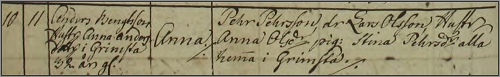 10 11 Anders Bengtsson
Hustr Anna Anders
dotr i Grimsta
32 år g.
Anna.
Pehr Pehrsson, dr Lars Olsson, Hustr
Anna Olsd pig: Stina Pehrsd: alla
hema i Grimsta.